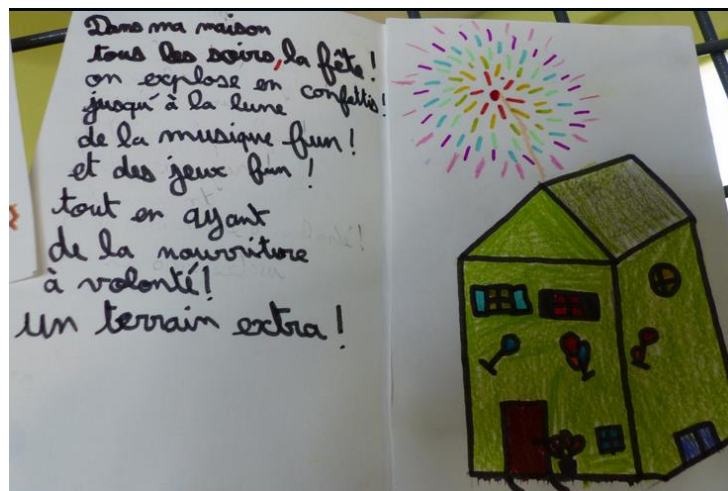 Dans ma maison
tous les soirs, la fête !
on explose en confettis !
jusqu'à la lune
de la musique fun !
et des jeux fun !
tout en ayant
de la nourriture
à volonté !
un terrain extra !